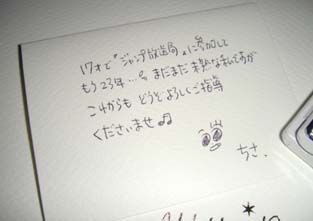 17才で“ジャンプ放送局„に参加して
もう23年…。まだまだ未熟な私ですが
これからも どうぞよろしくご指導
くださいませ♫
ちさ.